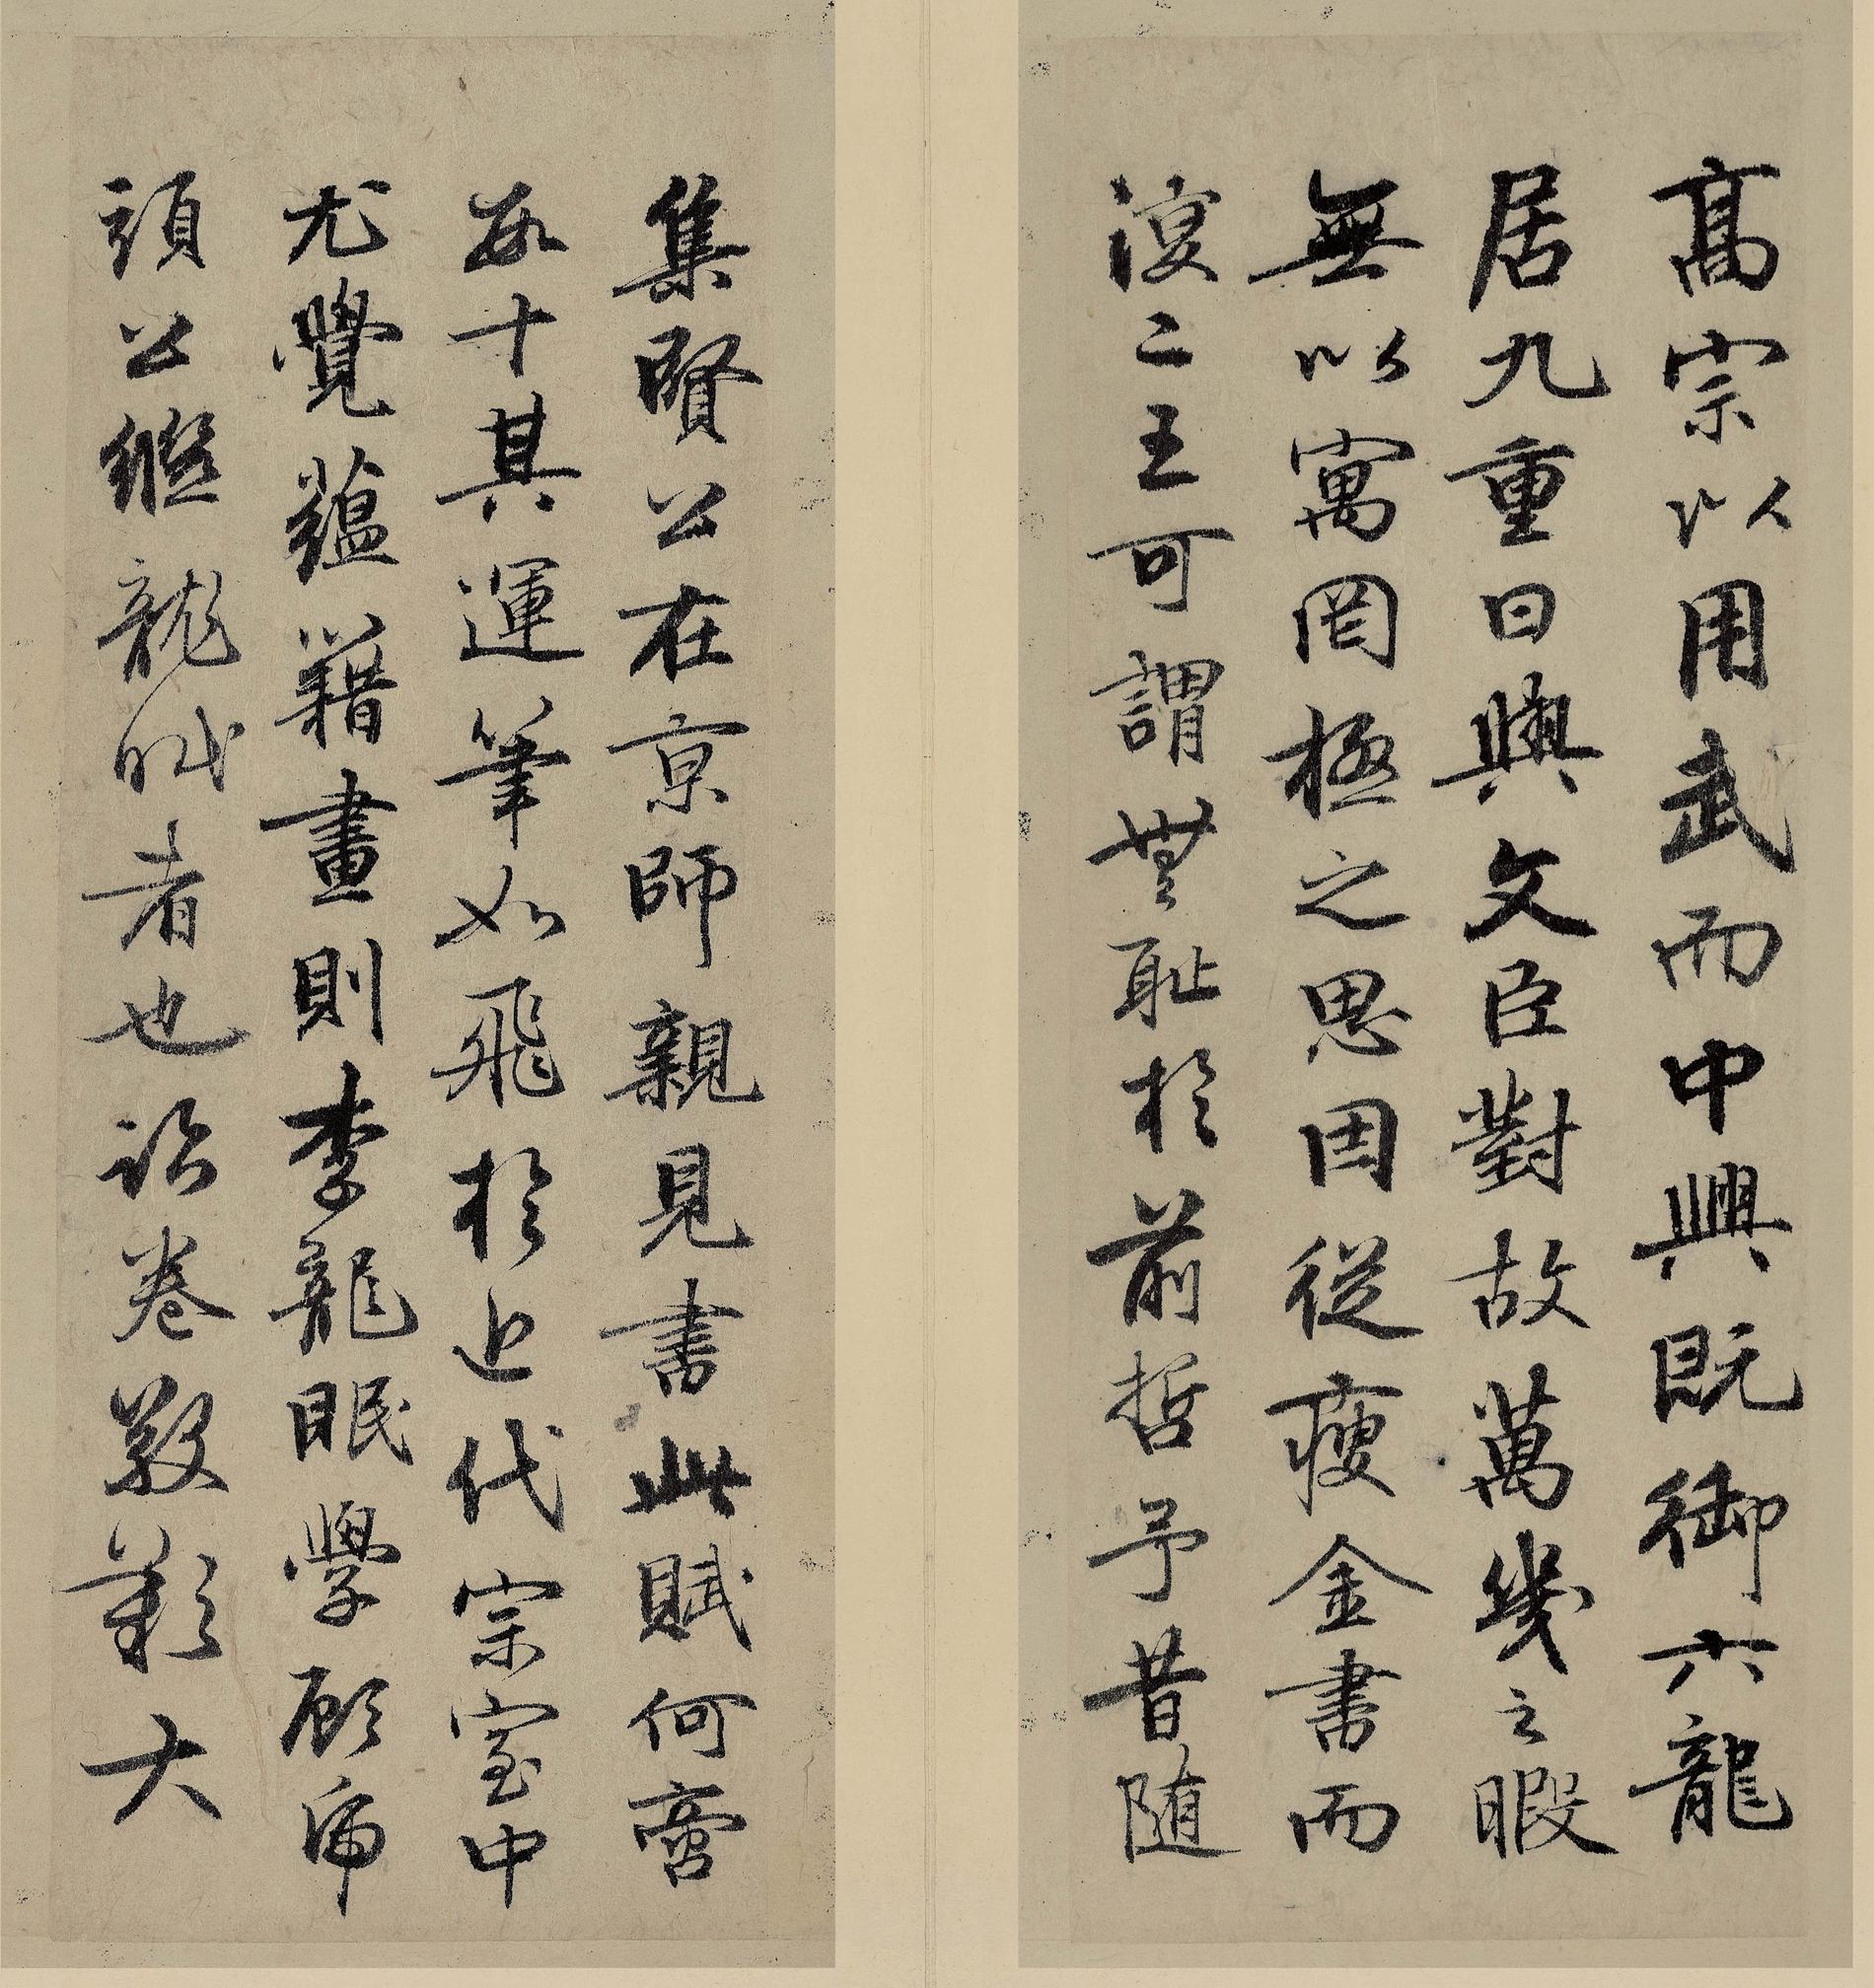 髙宗以用武而中興既御六龍
居九重日與文臣對故萬幾之暇
無以寓罔極之思因從瘦金書而
溟二王可謂無耻於前哲予昔随
集賢公在京師親見書此賦何啻
數十其運筆如飛於近代宗室中
尤覺蘊藉畫則李龍眠學顧虎
頭公繼龍眠者也詒卷數歎大